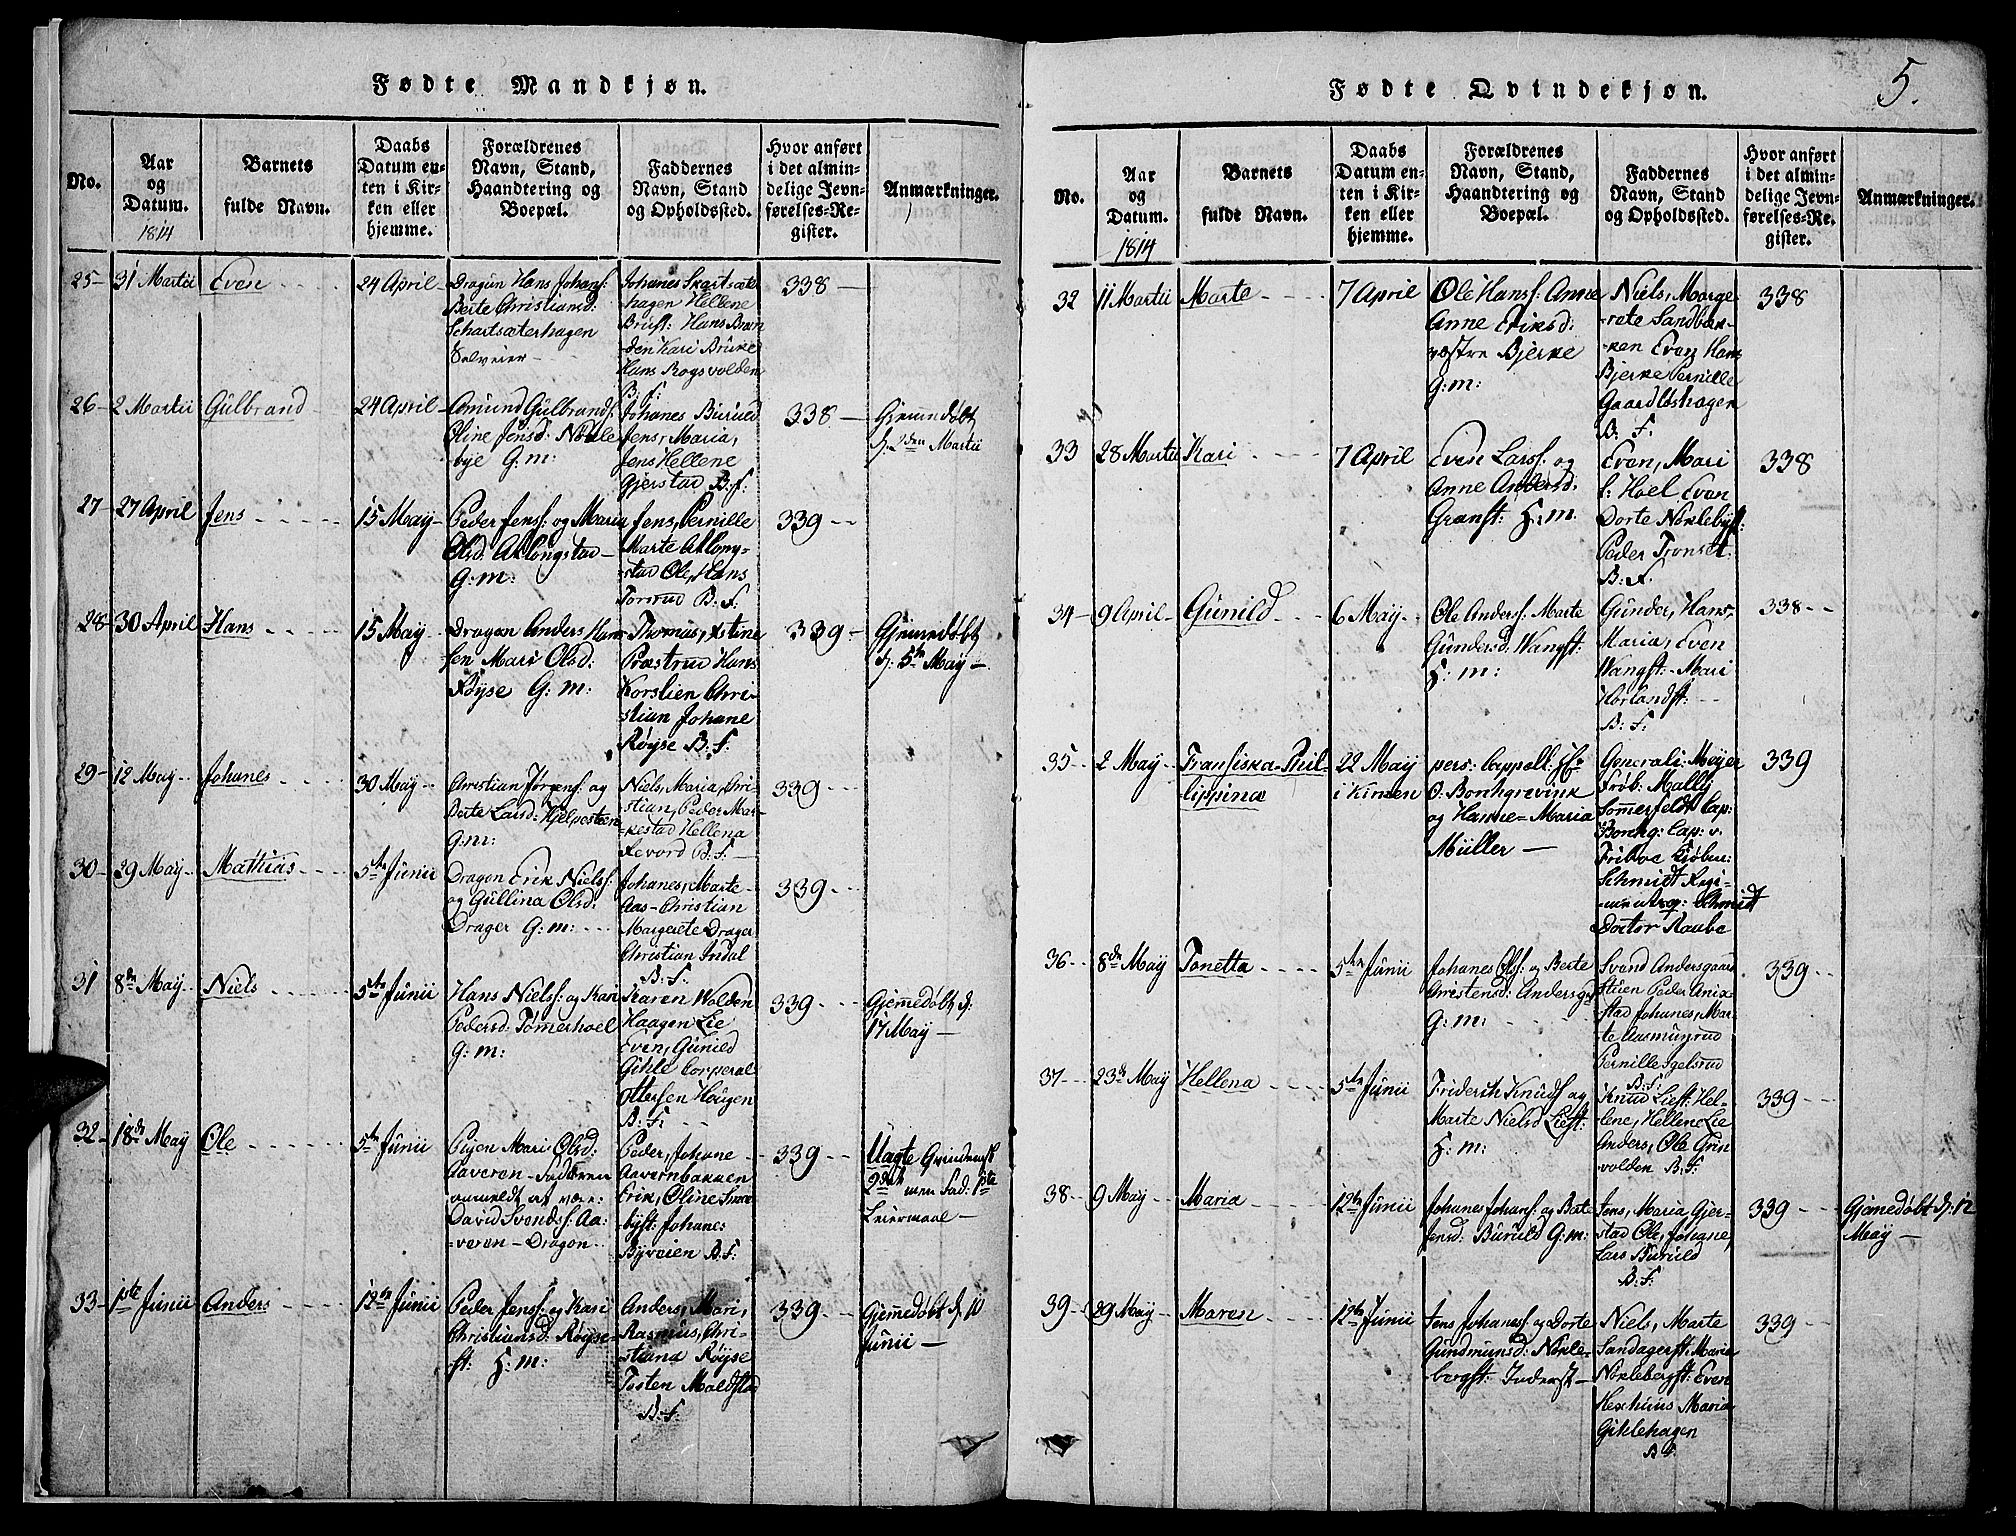 Fødte Mandkjøn.
No.
Aar
og
Datum.
1814
Barnets
fulde Navn.
Daabs
Datum en-
ten i Kir-
ken eller
hjemme.
Forældrenes
Navn, Stand,
Haandtering og
Boepæl.
Faddernes
Navn, Stand
og Opholdssted.
Hvor anført
i det almin-
delige Jevn-
førelses-Re-
gister.
Anmærkninger.
25 31 Martii Even 24 April
Dragun Hans Johans:
Berte Christiansd:
Schartsæterhagen
Selveier
Johanes Skartsæte
hagen Hellene
Brust: Hans Bræn
den Kari Brune
Hans Rogsvolden
B: f:
338
26 2 Martii Gulbrand 24 April
Amund Gulbrands:
Oline Jensd: Nørle
bye G: m:
Johanes Burud
Jens, Maria,
Jens Hellene
Gjerstad B: f:
338
Hjemdøbt
d: 2den Martii
27 27 April Jens 15 May
Peder Jens: og Maria
Olsd:
G: m:
Jens, Pernille
Marte
stad Ole, Hans
B: F:
339
28 30 April Hans 15 May
Dragon Anders Han
sen Mari Olsd:
Røyse G: m:
Thomas,
Præstrud Hans
Korslien Chri-
stian Johane
Røyse B: F:
339
Hjemedøbt
d: 5te May
29 12 May Johanes 30 May
Christian Jørgens: og
Berte Larsd:
G: m:
Niels, Maria, Chri-
stian, Peder Mar-
kestad Hellena
B: F:
339
30 29 May Mathias 5te Junii
Dragon Erik Niels:
og Gullina Olsd:
Drager G: m:
Johanes, Marte
Aas Christian
Margrete Drager
Christian Indal
B: F:
339
31 8de May Niels 5te Junii
Hans Niels: og Kari
Pedersd: Tømerhoel
G: m:
Karen Wolden
Haagen Lie
Even, Gunild
Gihle Corperal
Ottersen Haugen
B: F:
339
Hjemedøbt d:
17 May
32 18de May Ole 5te Junii
Pigen Mari Olsd:
Aaveren Faderen
anmeldt at være:
David Svends: Aa-
veren Dragon
Peder, Johane
Aavernbakken
Erik, Oline
byst: Johanes
Byveien B: F:
339
Uægte
2det men Fad: 1ste
Leiermaal
33 1ste Junii Anders 12te Junii
Peder Jens: og Kari
Christiansd: Røyse-
st: H: m:
Anders, Mari,
Rasmus, Chri-
stiana Røyse
Tosten Maldstad
B: F:
339
Hjemedøbt d: 10
Junii
Fødte Qvindekjøn.
5.
No.
Aar
og
Datum.
1814
Barnets
fulde Navn.
Daabs
Datum en-
ten i Kir-
ken eller
hjemme.
Forældrenes
Navn, Stand,
Haandtering og
Boepæl.
Faddernes
Navn, Stand
og Opholdssted.
Hvor anført
i det almin-
delige Jevn-
førelses-Re-
gister.
Anmærkninger.
32 11 Martii Marte 7 April
Ole Hans: Anne
Anne Eriksd:
vestre Bjerke
G: m:
Niels, Marge
rete Sandbæk-
ken Even Hans
Bjerke Pernille
Gaardløshagen
B: F:
338
33 28 Martii Kari 7 April
Even Lars: og
Anne Andersd:
Granst: H: m:
Even, Mari
Hoel Even
Dorte Nørlebyst:
Peder Tronset
B: F:
338
34 9 April Gunild 6 May
Ole Anders: Marte
Gundersd: Wangst:
H: m:
Gunder, Hans,
Maria, Even
Wangst: Mari
Horlandst:
B: F:
338
35 2 May Fransiska Phil-
lippina
22 May
i Kirken
pers: Cappell: Hr
O: Borchgrevink
og Hanne Maria
Müller
General: Meyer
Frøk: Mally
Somerfeldt Cap:
Borchg: Cap: v:
Schmidt Regi-
Schmidt
Doctor Raabe
339
36 8de May Tonetta 5te Junii
Johanes Ols: og Berte
Christensd: Andersg
G: m:
Svend Andersgaard
stuen Peder
stad Johanes, Mar-
te Aasmunrud
Pernille Igelsrud
B: F:
339
37 23de May Hellena 5te Junii
Friderich Knuds: og
Marte Nielsd Liest:
H: m:
Knud Liest: Hel-
lene, Hellene Lie
Anders, Ole Grin
volden B: F:
339
38 9 May Maria 12te Junii
Johanes Johans: og Berte
Jensd: Buruld G: m:
Jens, Maria Gjer-
stad Ole, Johane,
Lars Buruld
B: F:
339
Hjemedøbt d: 12
May
39 29 May Maren 12te Junii
Jens Johanes: og Dorte
Gundmunsd: Nørle-
bergst: Inderst
Niels, Marte
Sandagerst: Maria
Nørlebergst: Even
Hexhuus Maria
Gihlehagen
B: F:
339